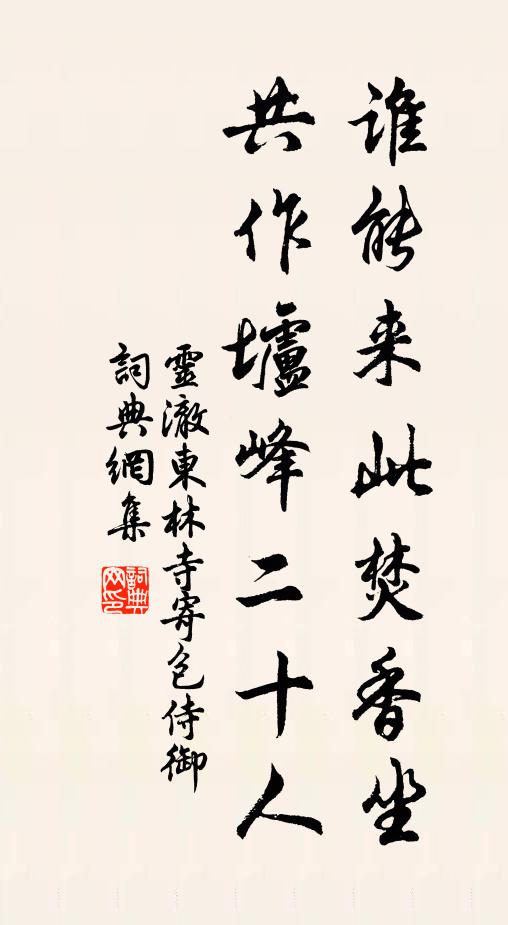 谁能来此焚香坐
共作壚峰二十人
靈澈東林寺寄包侍御
詞典網集
詞典網印